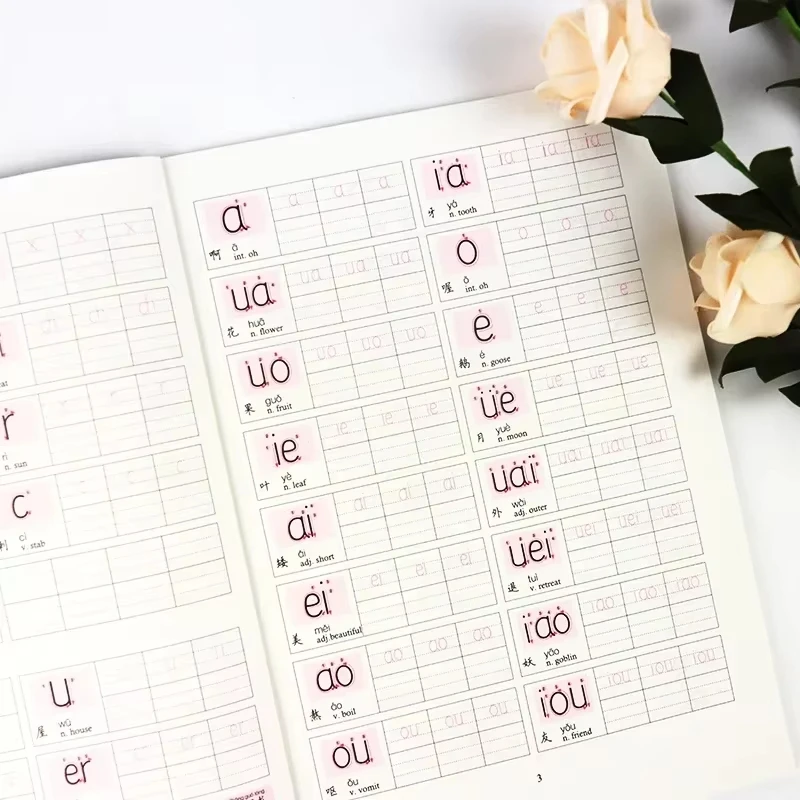 x x x
r
rì
n. sun
c c c
cì
刺 v. stab
u
wū
屋 n. house
er er er
a a a a
ā
啊 int. oh
ia ia ia ia
yá
牙 n. tooth
ua ua ua ua
huā
花 n. flower
o o o o
ō
喔 int. oh
uo uo uo uo
guǒ
果 n. fruit
e e e e
é
鹅 n. goose
ie ie ie ie
yè
叶 n. leaf
üe üe üe üe
yuè
月 n. moon
ai ai ai ai
ǎi
矮 adj. short
uai uai uai uai
wài
外 adj. outer
ei ei ei ei
měi
美 adj.beautiful
uei uei uei uei
tuì
退 v. retreat
ao ao ao ao
áo
熬 v. boil
iao iao iao iao
yāo
妖 n. goblin
ou ou ou ou
ǒu
呕 v. vomit
iou iou iou iou
yǒu
友 n. friend
3